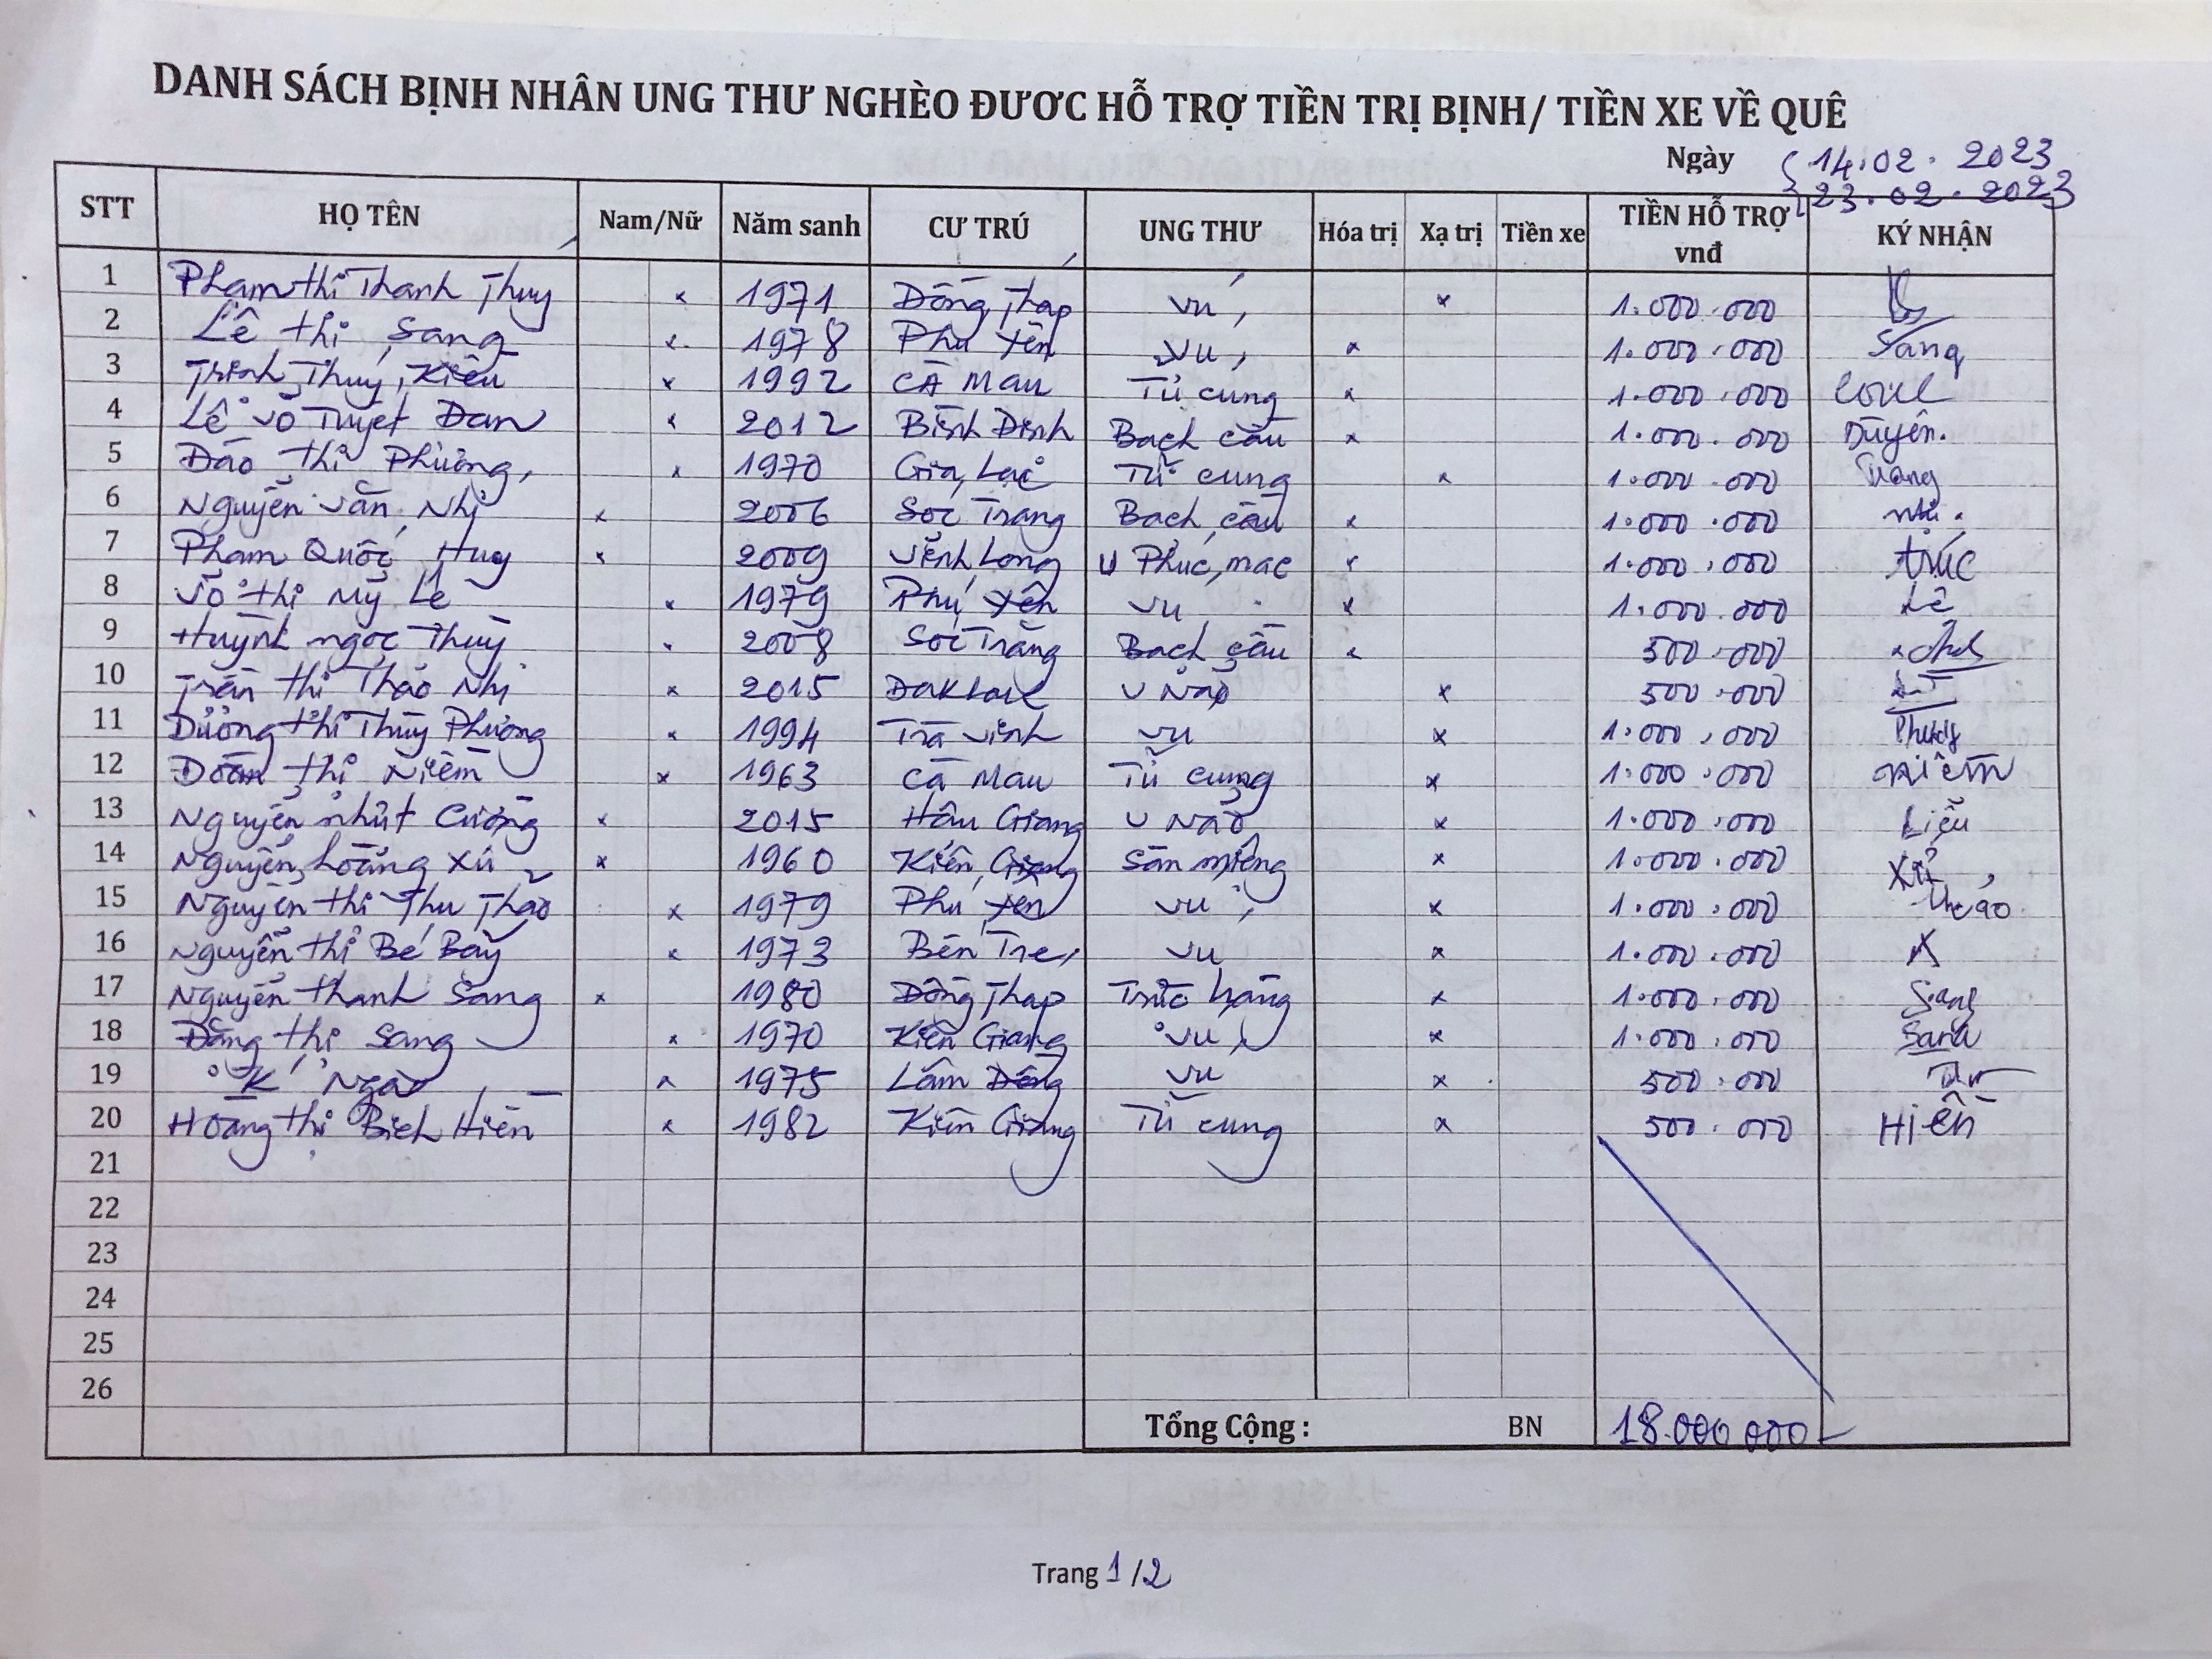 DANH SÁCH BỊNH NHÂN UNG THƯ NGHÈO ĐƯƠC HỖ TRỢ TIỀN TRỊ BỊNH/ TIỀN XE VỀ QUÊ
Ngày 14.02.2023
23.02.2023
STT HỌ TÊN Nam/Nữ Năm sanh CƯ TRÚ UNG THƯ Hóa trị Xạ trị Tiền xe TIỀN HỖ TRỢ vnđ KÝ NHẬN
1 Phạm thị Thanh Thuý x 1971 Đồng Tháp Vú x 1.000.000
2 Lê thị Sang x 1978 Phú Yên Vú x 1.000.000 Sang
3 Trịnh Thuý Kiều x 1992 CÀ Mau Tử cung x 1.000.000
4 Lê Võ Tuyết Đan x 2012 Bình Định Bạch cầu x 1.000.000 Duyên.
5 Đào thị Phượng x 1970 Gia Lai Tử cung x 1.000.000 Trang
6 Nguyễn Văn Nhị x 2006 Sóc Trăng Bạch cầu x 1.000.000 Nhị.
7 Phạm Quốc Huy x 2009 Vĩnh Long U Phúc mạc x 1.000.000 trúc
8 Võ thị Mỹ Lệ x 1979 Phú Yên Vú x 1.000.000 Lệ
9 Huỳnh ngọc Thuỳ x 2008 Sóc Trăng Bạch cầu x 500.000
10 Trần thị Thảo Nhị x 2015 DakLak U Não x 500.000
11 Dương thị Thùy Phương x 1994 Trà Vinh Vú x 1.000.000 Phương
12 Đoàn thị Niềm x 1963 Cà Mau Tử cung x 1.000.000 Niềm
13 Nguyễn nhựt Cường x 2015 Hậu Giang U Não x 1.000.000 Liễu
14 Nguyễn hoàng Xứ x 1960 Kiên Giang Sàn miệng x 1.000.000 Xứ
15 Nguyễn thị Thu Thảo x 1979 Phú Yên Vú x 1.000.000 Thảo
16 Nguyễn thị Bé Bảy x 1973 Bến Tre Vú x 1.000.000 X
17 Nguyễn thanh Sang x 1980 Đồng Tháp Trực tràng x 1.000.000 Sang
18 Đặng thị Sang x 1970 Kiên Giang Vú x 1.000.000 Sang
19 K' Ngào x 1975 Lâm Đồng Vú x 500.000
20 Hoàng thị Bích Hiền x 1982 Kiên Giang Tử cung x 500.000 Hiền
21
22
23
24
25
26
Tổng Cộng : BN 18.000.000
Trang 1/2